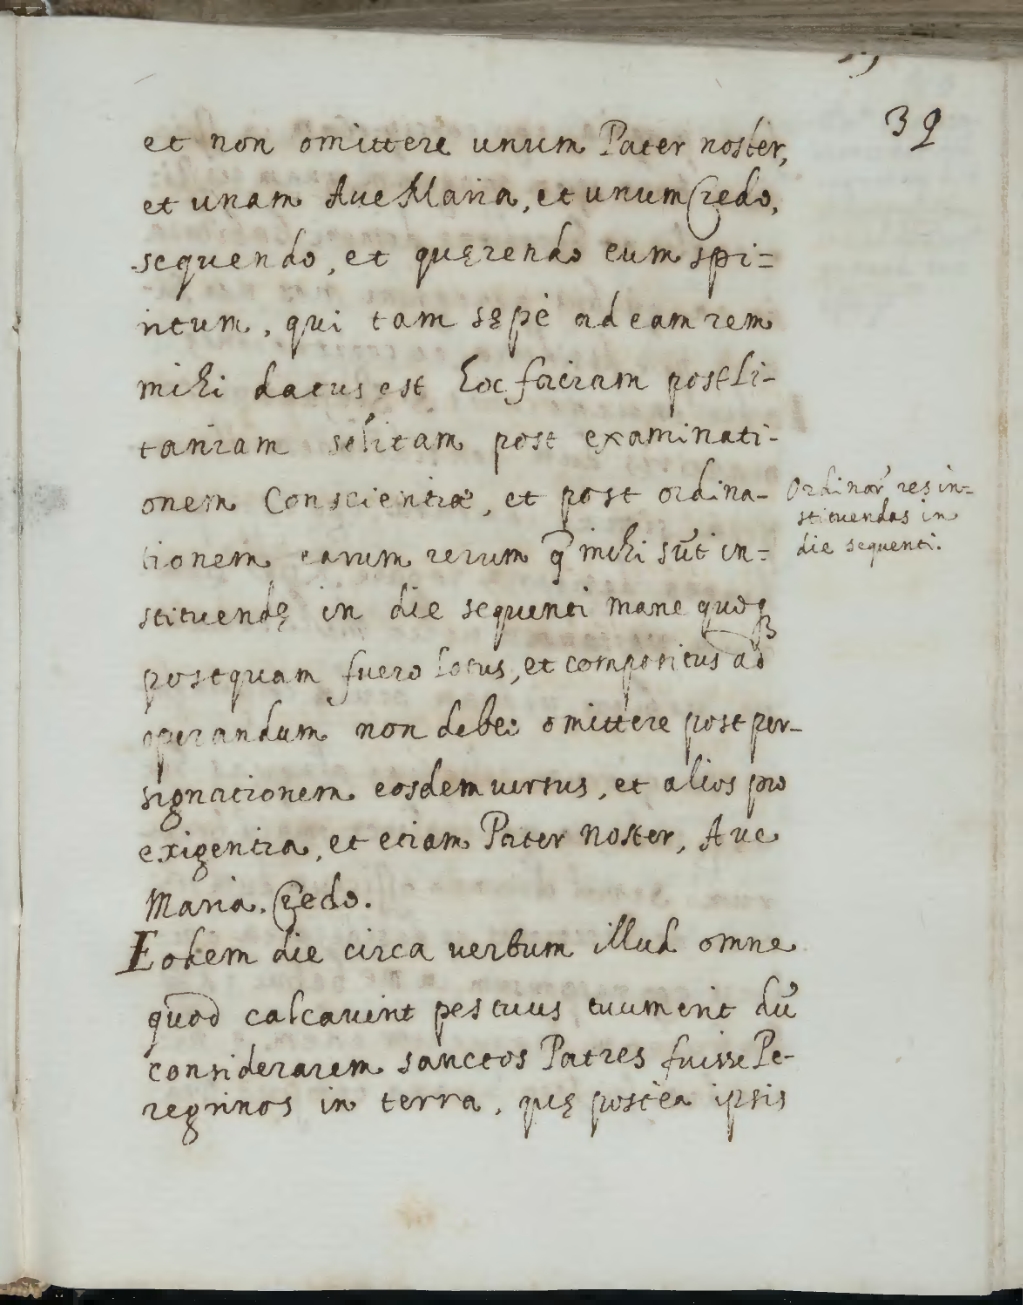 39
et non omittere unum Pater noster,
et unam Aue Maria, et unum Credo,
sequendo, et quęrendo eum spi=
ritum, qui tam sępè ad eam rem
mihi datus est hoc faciam post li-
taniam solitam post examinati-
onem Conscientiæ, et post ordina-
tionem earum rerum q̃ mihi sũt in=
stituendę in die sequenti mane quoqȝ
postquam fuero lotus, et compositus ad
operandum non debeo omittere post per-
signationem eosdem uersus, et alios pro
exigentia, et etiam Pater Noster, Aue
Maria. Credo.
Eodem die circa verbum illud omne
quod calcauerit pes tuus, tuum erit dũ
considerarem sanctos Patres fuisse Pe-
regrinos in terra, quę posteà ipsis
Ordinar̃ res in=
stituendas in
die sequenti.